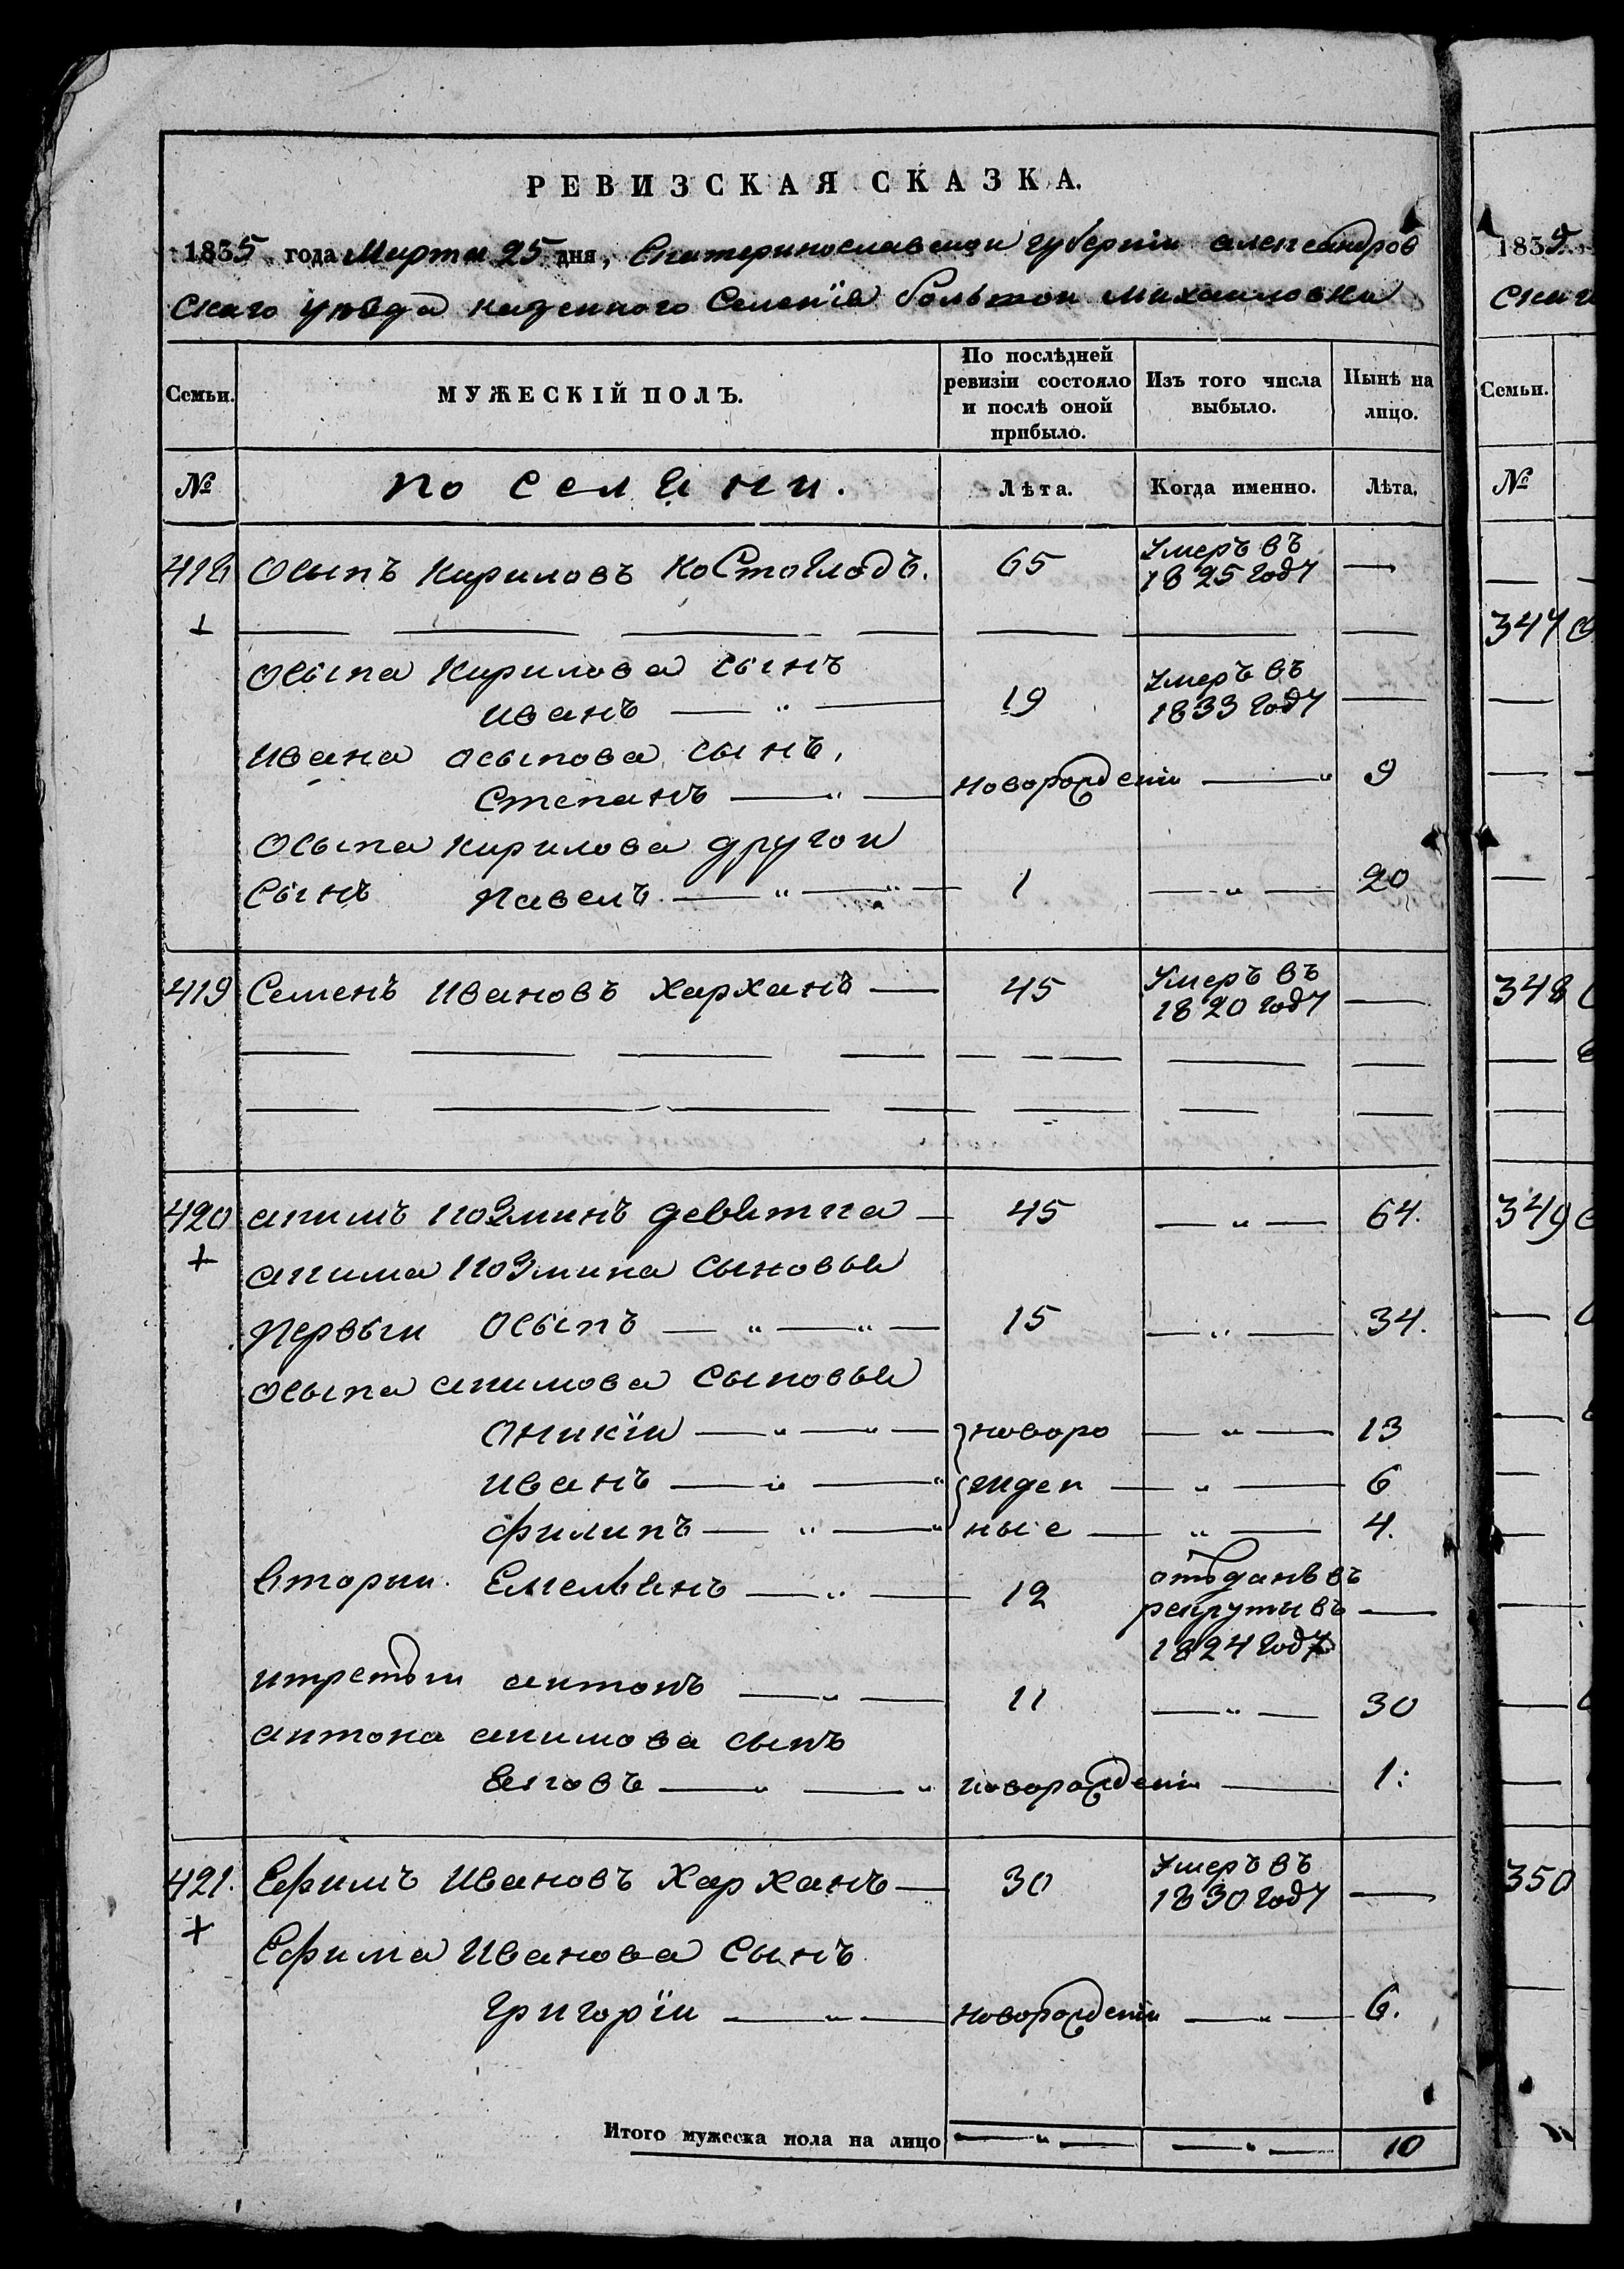 РЕВИЗСКАЯ СКАЗКА.
1835 года Марта 25 дня, Екатеринославской губернiи александров
скаго уезда казенного Селенїя большои михаиловки
Семьи. МУЖЕСКІЙ ПОЛЪ. По послѣдней ревизіи состояло и послѣ оной прибыло. Изъ того числа выбыло. Нынѣ на лицо.
№ по селяни. Лѣта. Когда именно. Лѣта.
418 Осыпъ Кириловъ Костоглодъ. 65 Умеръ въ 1825 году —
Осыпа Кирилова сынъ
Иванъ — " — 19 Умеръ въ 1833 году —
Ивана Осыпова сынъ,
Степанъ — " — новорожденн — " 9
Осыпа Кирилова другои
Сынъ Павелъ — " — " — 1 — " — 20
419 Семенъ Ивановъ Харханъ — 45 Умеръ въ 1820 году —
420 акимъ козминъ девятка — 45 — " — 64.
акима козмина сыновья
Первыи Осыпъ — " — " — 15 — " — 34.
Осыпа акимова сыновья
Оникїи — " — " — новоро — " — 13
Иванъ — " — " жден — " — 6
филипъ — " — " ные — " — 4.
вторыи. Емельянъ — " — 12 отъданъ въ рекруты въ 1824 году —
итретьи антонъ — " — 11 — " — 30
антона акимова сынъ
яковъ — " — " новорожденн — 1:
421. Ефимъ Ивановъ Харханъ — 30 Умеръ въ 1830 году —
Ефима Иванова Сынъ
Григорїи — " — новорожденн — " — 6.
Итого мужеска пола на лицо — " — — " — 10
1835
скаг
Семьи.
№
347
348
349
350